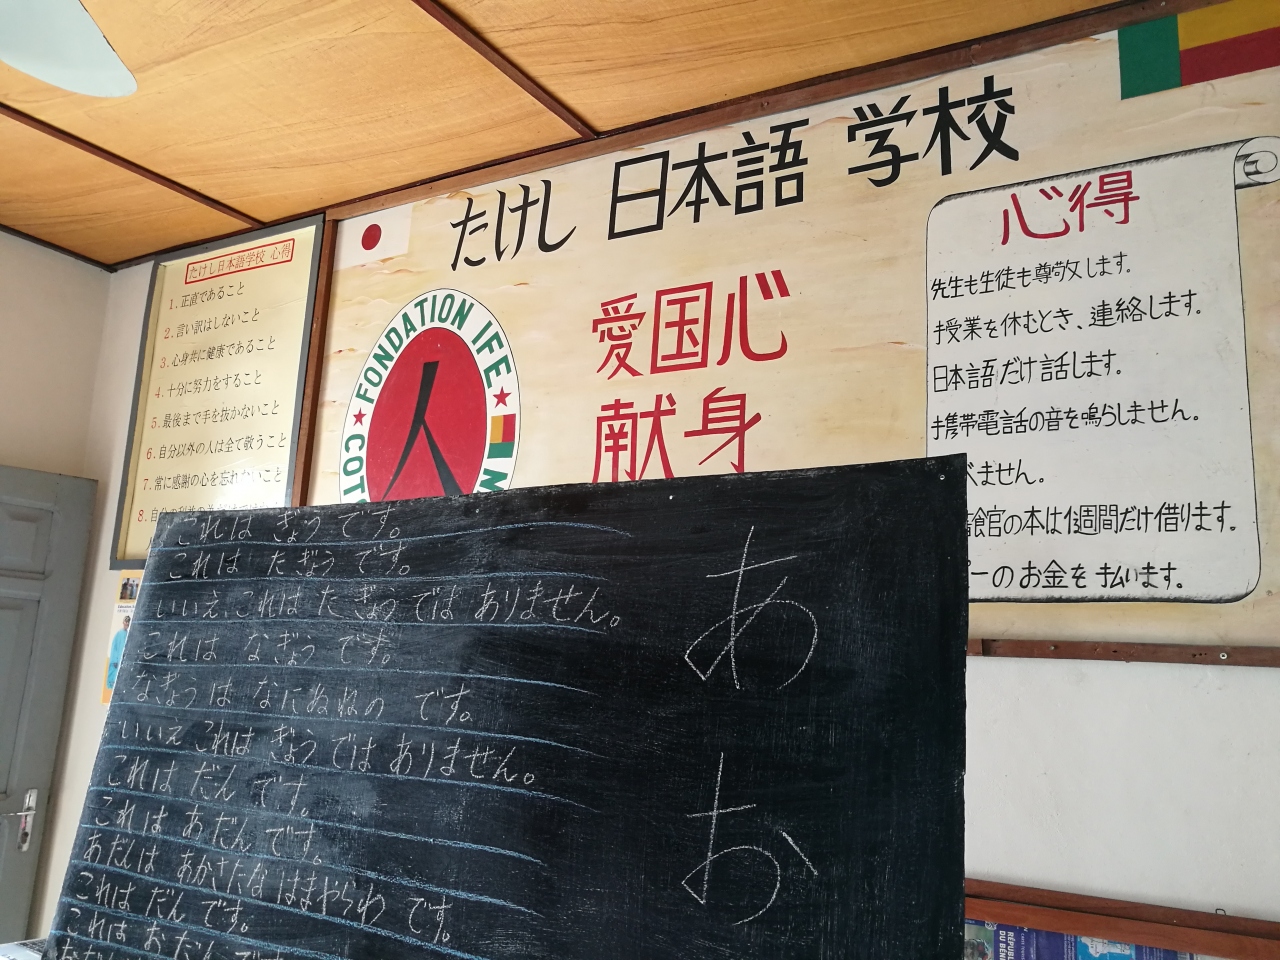 たけし日本語学校 心得
1. 正直であること
2. 言い訳はしないこと
3. 心身共に健康であること
4. 十分に努力をすること
5. 最後まで手を抜かないこと
6. 自分以外の人は全て敬うこと
7. 常に感謝の心を忘れないこと
8. 自分の
たけし 日本語 学校
愛国心
献身
FONDATION IFE
人
COT
心得
先生も生徒も尊敬します。
授業を休むとき、連絡します。
日本語だけ話します。
携帯電話の音を鳴らしません。
べません。
館の本は1週間だけ借ります。
ピーのお金を払います。
これは ぎょう です。
これは たぎょう です。
いいえ、これは たぎょう ではありません。
これは なぎょう です。
なぎょう は なにぬねの です。
いいえ これは ぎょう では ありません。
これは だん です。
これは あだん です。
あだんは あかさたな はまやらわ です。
これは だん です。
これは おだん です
あ
お
RÉPUBLI
DU BÉNI